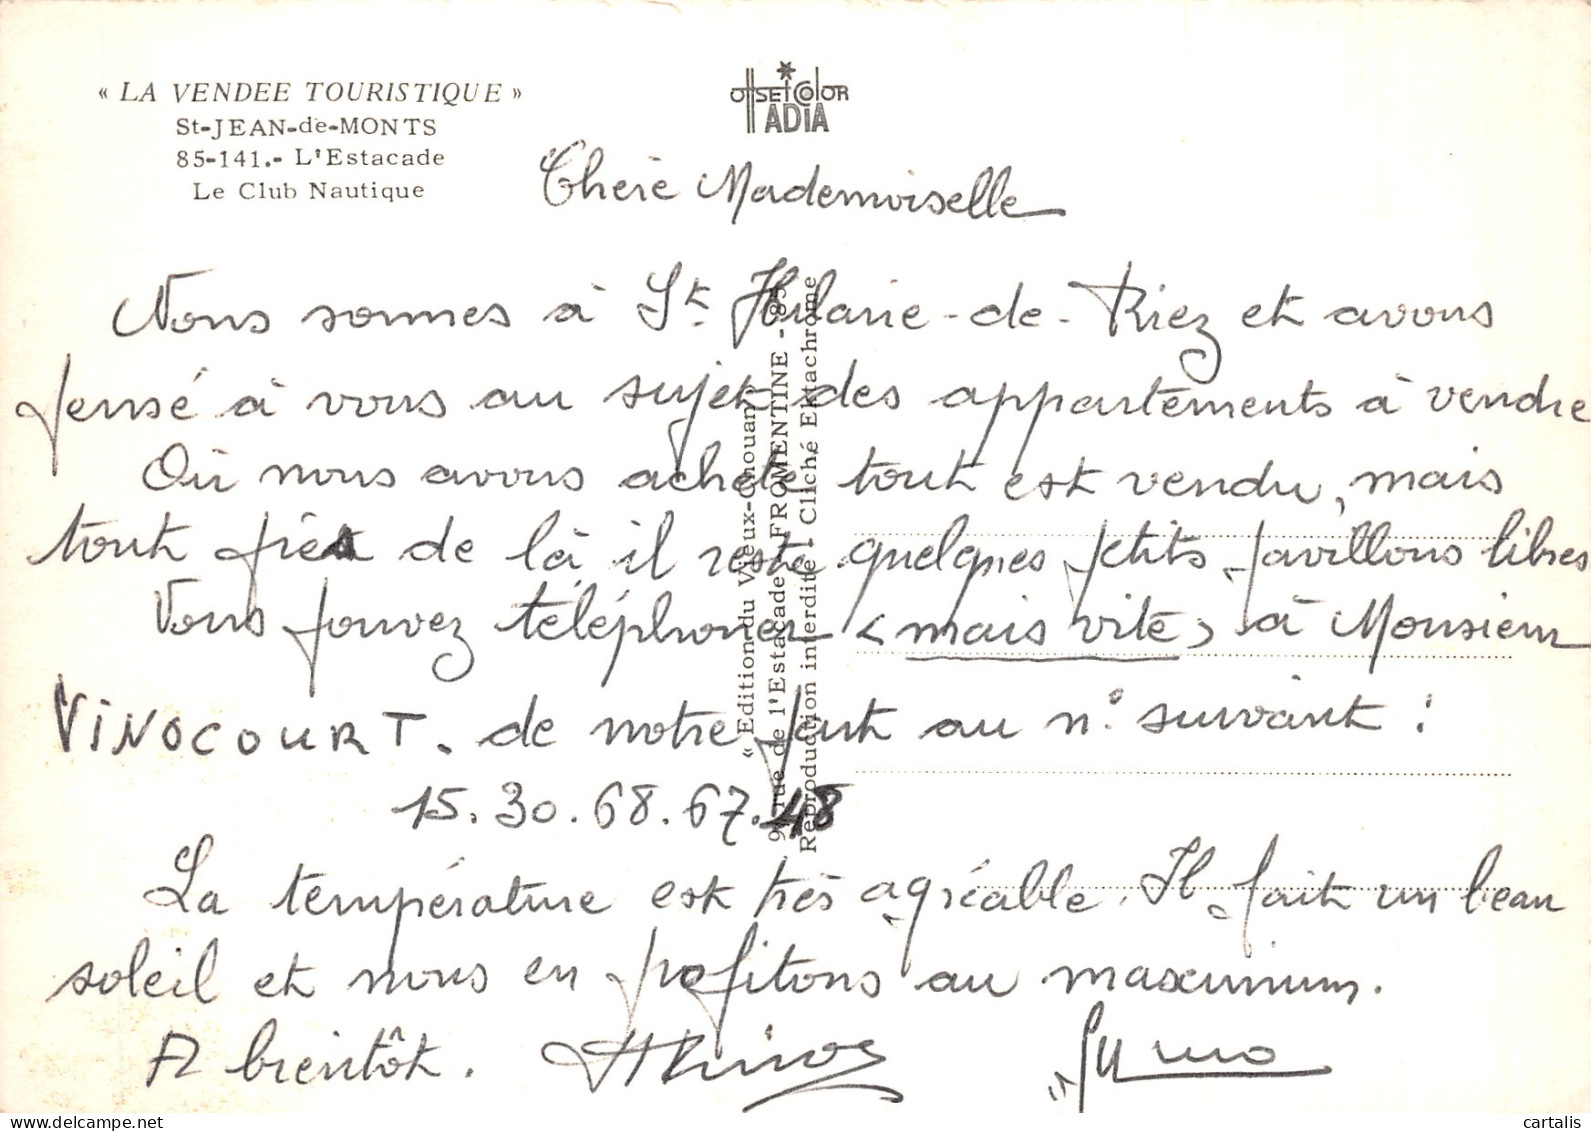 « LA VENDEE TOURISTIQUE »
St-JEAN-de-MONTS
85-141.- L'Estacade
Le Club Nautique
OffsetColor
ADIA
Chère Mademoiselle
Nous sommes à St. Hilaire-de-Riez et avons
pensé à vous au sujet des appartements à vendre
Où nous avons acheté tout est vendu, mais
tout près de là il reste quelques petits pavillons libres
Vous pouvez téléphoner (mais vite) à Monsieur
VINOCOURT. de notre part au n° suivant :
15.30.68.67.48
La température est très agréable. Il fait un beau
soleil et nous en profitons au maximum.
A bientôt.
« Edition du Vieux-Chouan »
9, rue de l'Estacade FROMENTINE - 85
Reproduction interdite - Cliché Ektachrome
cartalis